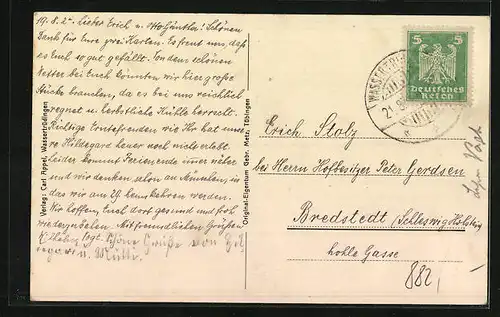 19.8.25. Lieber Erich u. Otto Günther! Schönen
Dank für Eure zwei Karten. Es freut uns, daß
es Euch so gut gefällt. Von dem schönen
Wetter bei Euch könnten wir hier große
Stücke brauchen, da es bei uns reichlich
regnet u. herbstliche Kühle herrscht.
Richtige Erntefreuden wie Ihr hat unse-
re Hildegard heuer noch nicht erlebt.
Leider kommt Ferienende immer näher
und wir denken schon an
das wir am 29. heimkehren werden.
Wir hoffen, Euch dort gesund und froh
wiederzusehen. Mit freundlichen Grüßen
Vogt. Schöne Grüße von Hil-
u. Mutti.
Verlag: Carl Appel, Wassertrüdingen
Original-Eigentum Gebr. Metz, Tübingen
5 5
Deutsches
Reich
WASSERTRÜ
Erich Stolz
bei Herrn Hofbesitzer Peter Gerdsen
Bredstedt (Schleswig Holstein)
hohle Gasse
882,